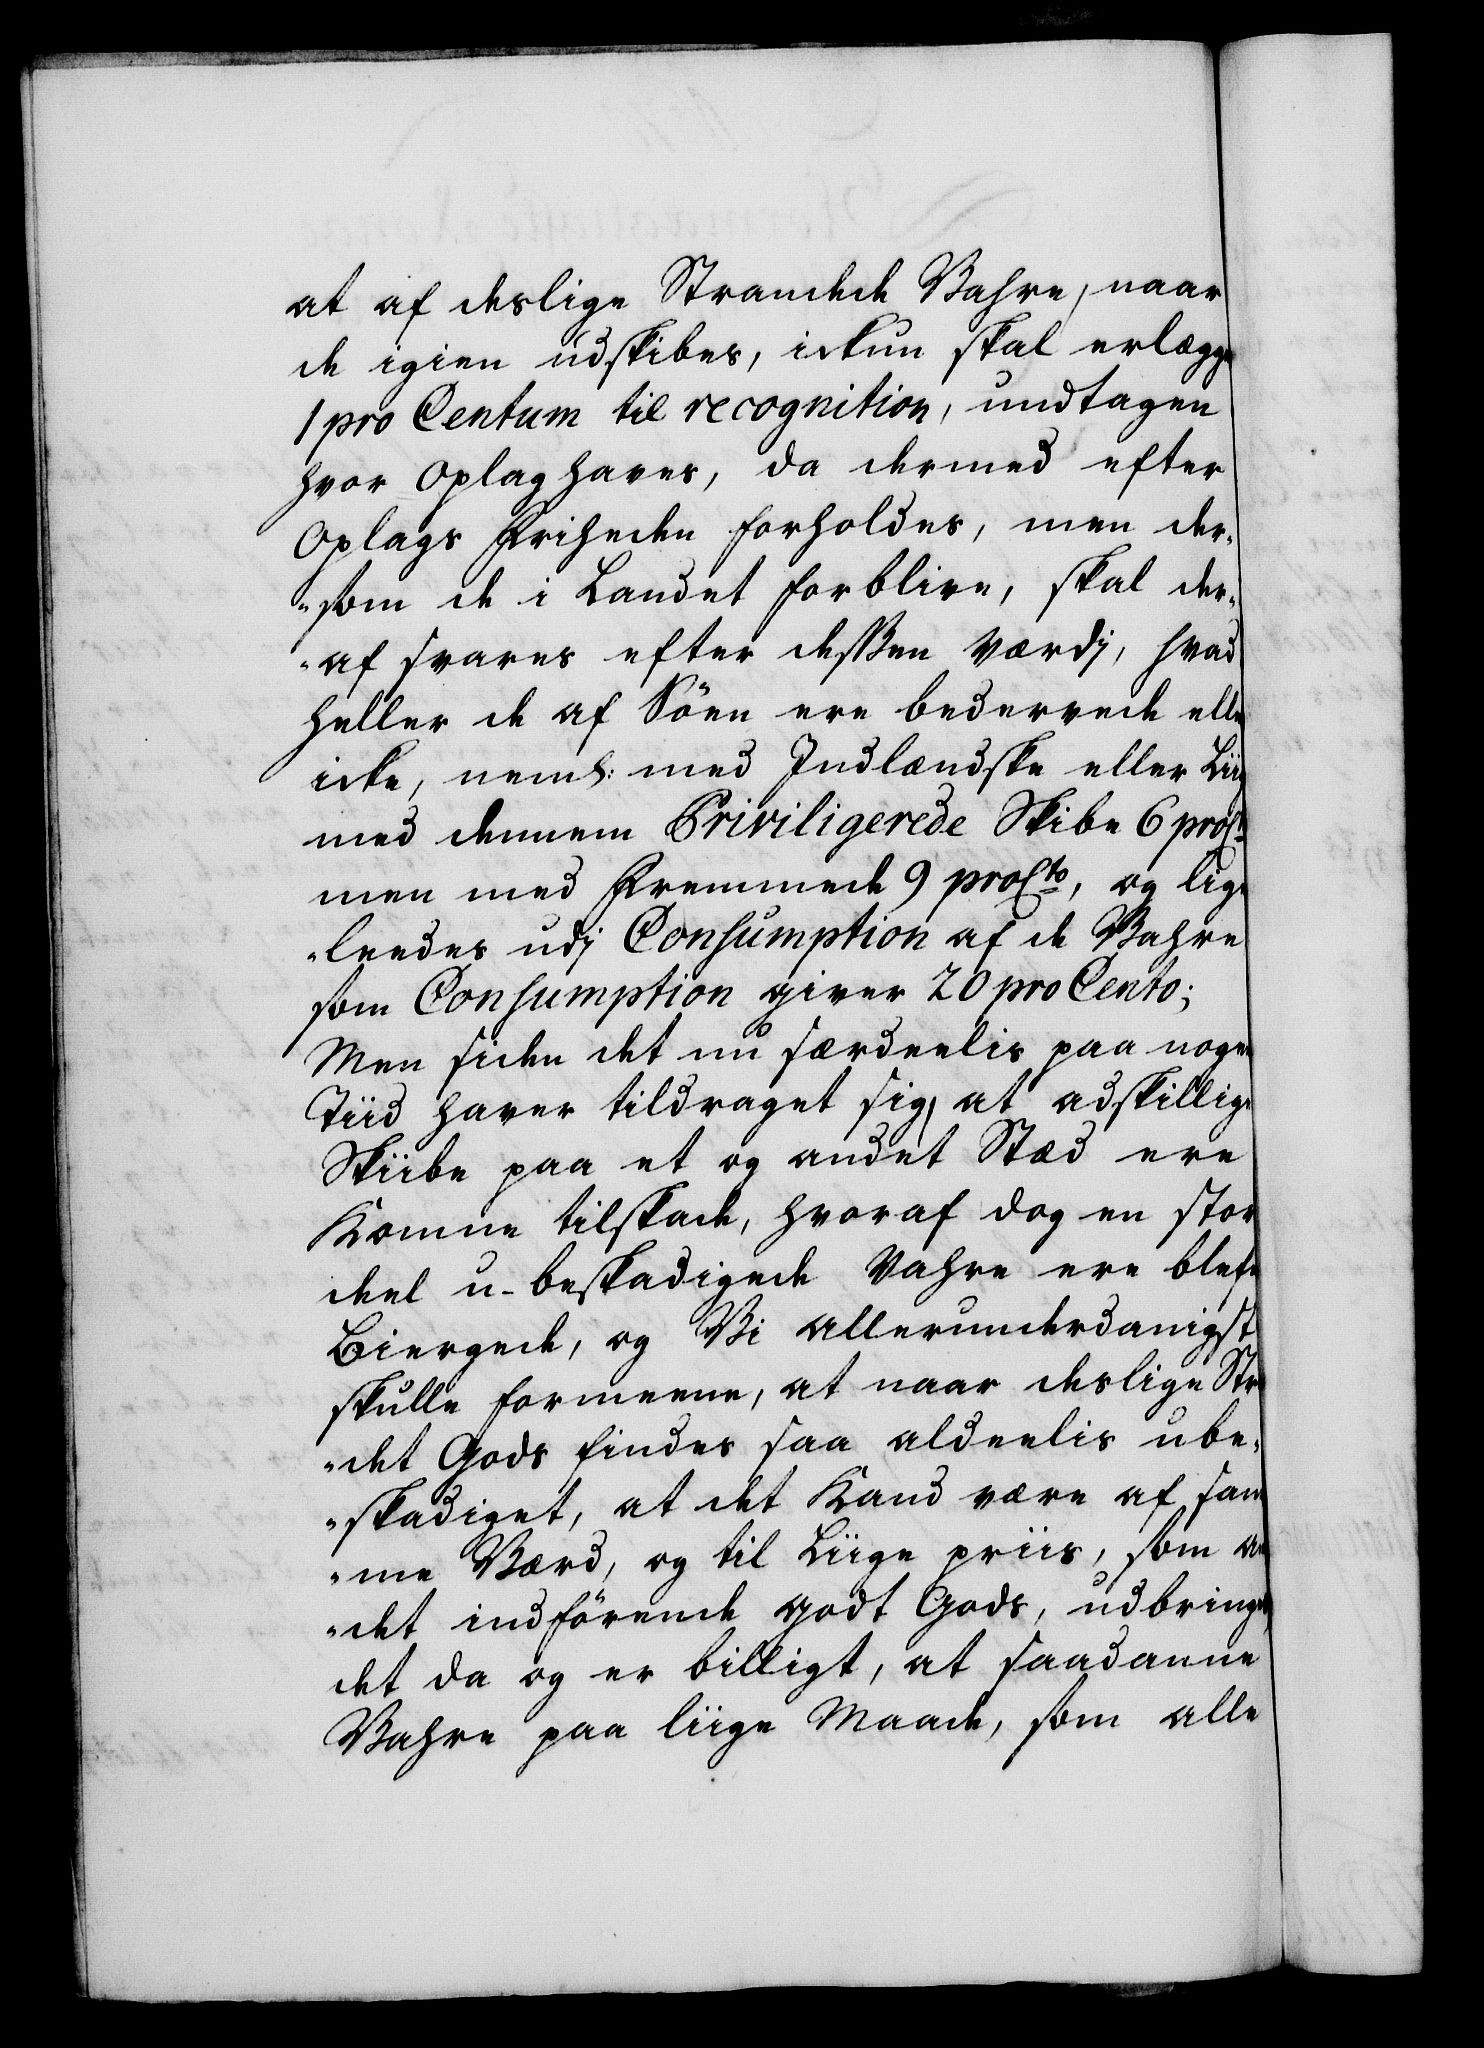 at af deslige Strandede Vahre, naar
de igien udskibes, ickun skal erlægge
1 pro Centum til recognition, undtagen
hvor Oplag haves, da dermed efter
Oplags Friheden forholdes, men der-
-som de i Landet forblive, skal der-
-af svares efter desßen Værdj, hvad
heller de af Söen ere bedervede elle
icke, neml: med Indlændske eller Lii
med dennem Priviligerede Skibe 6 proC
men med Fremmede 9 proCto, og lige
-leedes udj Consumption af de Vahre
som Consumption giver 20 pro Cento;
Men siden det nu særdeelis paa nogen
Tiid haver tildraget sig, at adskillige
Skiibe paa et og andet Stæd ere
Komne tilskade, hvoraf dog en stor
deel u-beskadigede Vahre ere blefe
Biergede, og Vi allerunderdanigst
skulle formeene, at naar deslige Stra
-det Gods findes saa aldeelis ube-
-skadiget, at det Kand være af sam
-me Værd, og til Liige priis, som an
-det indförende godt Gods, udbringes,
det da og er billigt, at saadanne
Vahre paa liige Maade, som alle